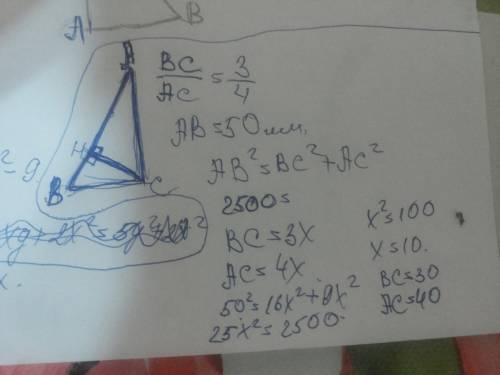 A B
BC/AC = 3/4
A
AB=50мм.
H
B C
AB²=BC²+AC²
2500=
BC=3x
AC=4x
50²=16x²+9x²
25x²=2500.
x²=100
x=10.
BC=30
AC=40
² = 9
x.